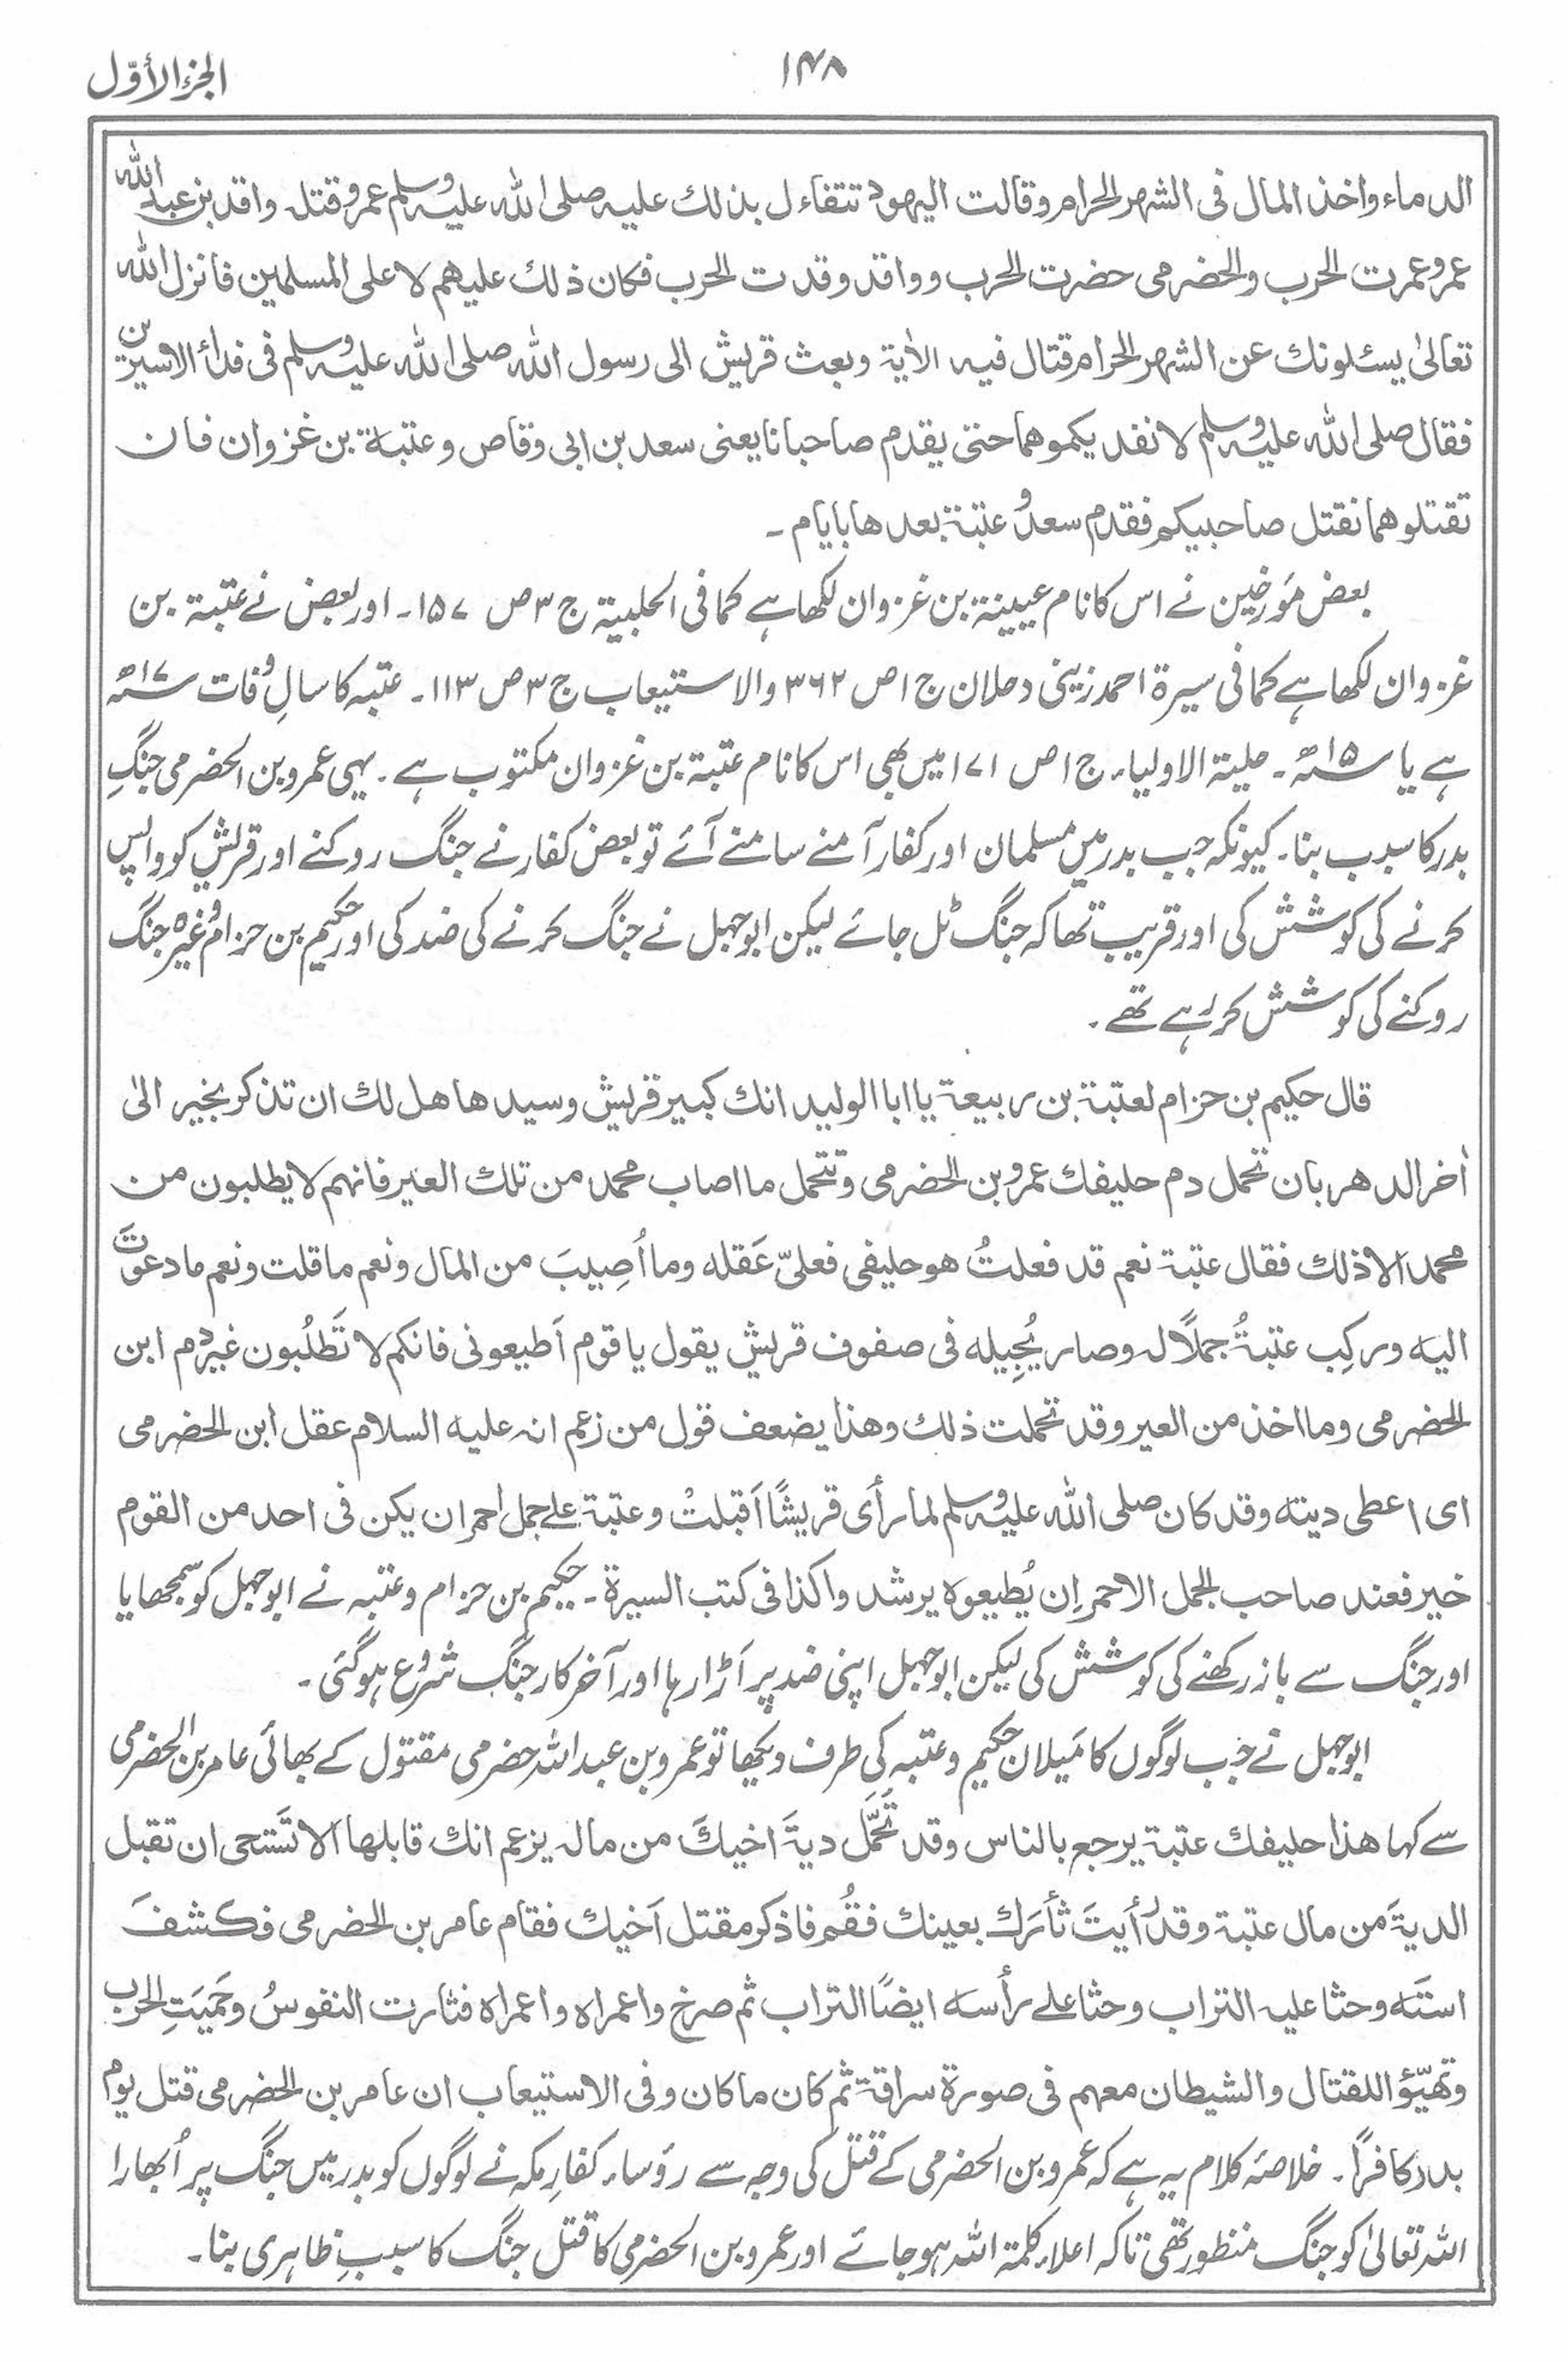 الجزء الأوّل
۱۴۸
الدماء واخذ المال فی الشهر الحرام وقالت الیهود تتفاءل بذلك علیه صلی الله علیه وسلم عمرو قتله واقد بن عبد الله
عمرو عمرت الحرب والحضرمی حضرت الحرب وواقد وقدت الحرب فكان ذلك علیهم لا علی المسلمین فانزل الله
تعالیٰ یسئلونك عن الشهر الحرام قتال فیه الاٰیة وبعث قریش الی رسول الله صلی الله علیه وسلم فی فداء الاسیرین
فقال صلی الله علیه وسلم لا نفدیكموهما حتی یقدم صاحبانا یعنی سعد بن ابی وقاص وعتبة بن غزوان فان
تقتلوهما نقتل صاحبیكم فقدم سعد و عتبة بعدها بایام ۔
بعض مؤرخین نے اس کا نام عیینۃ بن غزوان لکھا ہے کما فی الحلبیۃ ج ۳ ص ۱۵۷ ۔ اور بعض نے عتبۃ بن
غزوان لکھا ہے کما فی سیرۃ احمد زینی دحلان ج ۱ ص ۳۶۲ والاستیعاب ج ۳ ص ۱۱۳ ۔ عتبہ کا سالِ وفات ۱۷ھ
ہے یا ۱۵ھ ۔ حلیۃ الاولیاء ج ۱ ص ۱۷۱ میں بھی اس کا نام عتبۃ بن غزوان مکتوب ہے ۔ یہی عمرو بن الحضرمی جنگِ
بدر کا سبب بنا ۔ کیونکہ جب بدر میں مسلمان اور کفار آمنے سامنے آئے تو بعض کفار نے جنگ روکنے اور قریش کو واپس
کرنے کی کوشش کی اور قریب تھا کہ جنگ ٹل جائے لیکن ابوجہل نے جنگ کرنے کی ضد کی اور حکیم بن حزام وغیرہ جنگ
روکنے کی کوشش کر رہے تھے ۔
قال حكیم بن حزام لعتبة بن ربیعة یا ابا الولید انك كبیر قریش وسیدها هل لك ان تذكر بخیر الیٰ
اٰخر الدهر بان تحمل دم حلیفك عمرو بن الحضرمی وتتحمل ما اصاب محمد من تلك العیر فانهم لا یطلبون من
محمد الا ذلك فقال عتبة نعم قد فعلتُ هو حلیفی فعلیّ عَقله وما اُصِیبَ من المال ونعم ما قلت ونعم ما دعوتَ
الیه ورکِب عتبةُ جملًا له وصار یُجِیله فی صفوف قریش یقول یا قوم اَطیعونی فانكم لا تَطلُبون غیر دم ابن
الحضرمی وما اخذ من العیر وقد تحملت ذلك وهذا یضعف قول من زعم انه علیه السلام عقل ابن الحضرمی
ای اعطی دیته وقد كان صلی الله علیه وسلم لما رأی قریشًا اَقبلتْ وعتبة علے جمل احمر ان یكن فی احد من القوم
خیر فعند صاحب الجمل الاحمر اِن یُطیعوه یرشدوا كذا فی كتب السیرة ۔ حکیم بن حزام و عتبہ نے ابوجہل کو سمجھایا
اور جنگ سے باز رکھنے کی کوشش کی لیکن ابوجہل اپنی ضد پر اَڑا رہا اور آخرکار جنگ شروع ہوگئی ۔
ابوجہل نے جب لوگوں کا مَیلان حکیم و عتبہ کی طرف دیکھا تو عمرو بن عبد اللہ حضرمی مقتول کے بھائی عامر بن الحضرمی
سے کہا هذا حلیفك عتبة یرجع بالناس وقد تَحَمَّل دیةَ اخیكَ من ماله یزعم انك قابلها الا تَستحی ان تقبل
الدیةَ من مال عتبة وقد رأیتَ ثأرَك بعینك فقُم فاذكر مقتل اَخیك فقام عامر بن الحضرمی فكشفَ
استَه وحثا علیه التراب وحثا علے رأسه ایضًا التراب ثم صرخ واعمراه واعمراه فثارت النفوسُ وحَمِیَتِ الحرب
وتهیّؤا للقتال والشیطان معهم فی صورة سراقة ثم كان ما كان وفی الاستیعاب ان عامر بن الحضرمی قتل یوم
بدر كافرًا ۔ خلاصۂ کلام یہ ہے کہ عمرو بن الحضرمی کے قتل کی وجہ سے رؤساء کفارِ مکہ نے لوگوں کو بدر میں جنگ پر اُبھارا
اللہ تعالیٰ کو جنگ منظور تھی تاکہ اعلاء کلمۃ اللہ ہو جائے اور عمرو بن الحضرمی کا قتل جنگ کا سببِ ظاہری بنا ۔